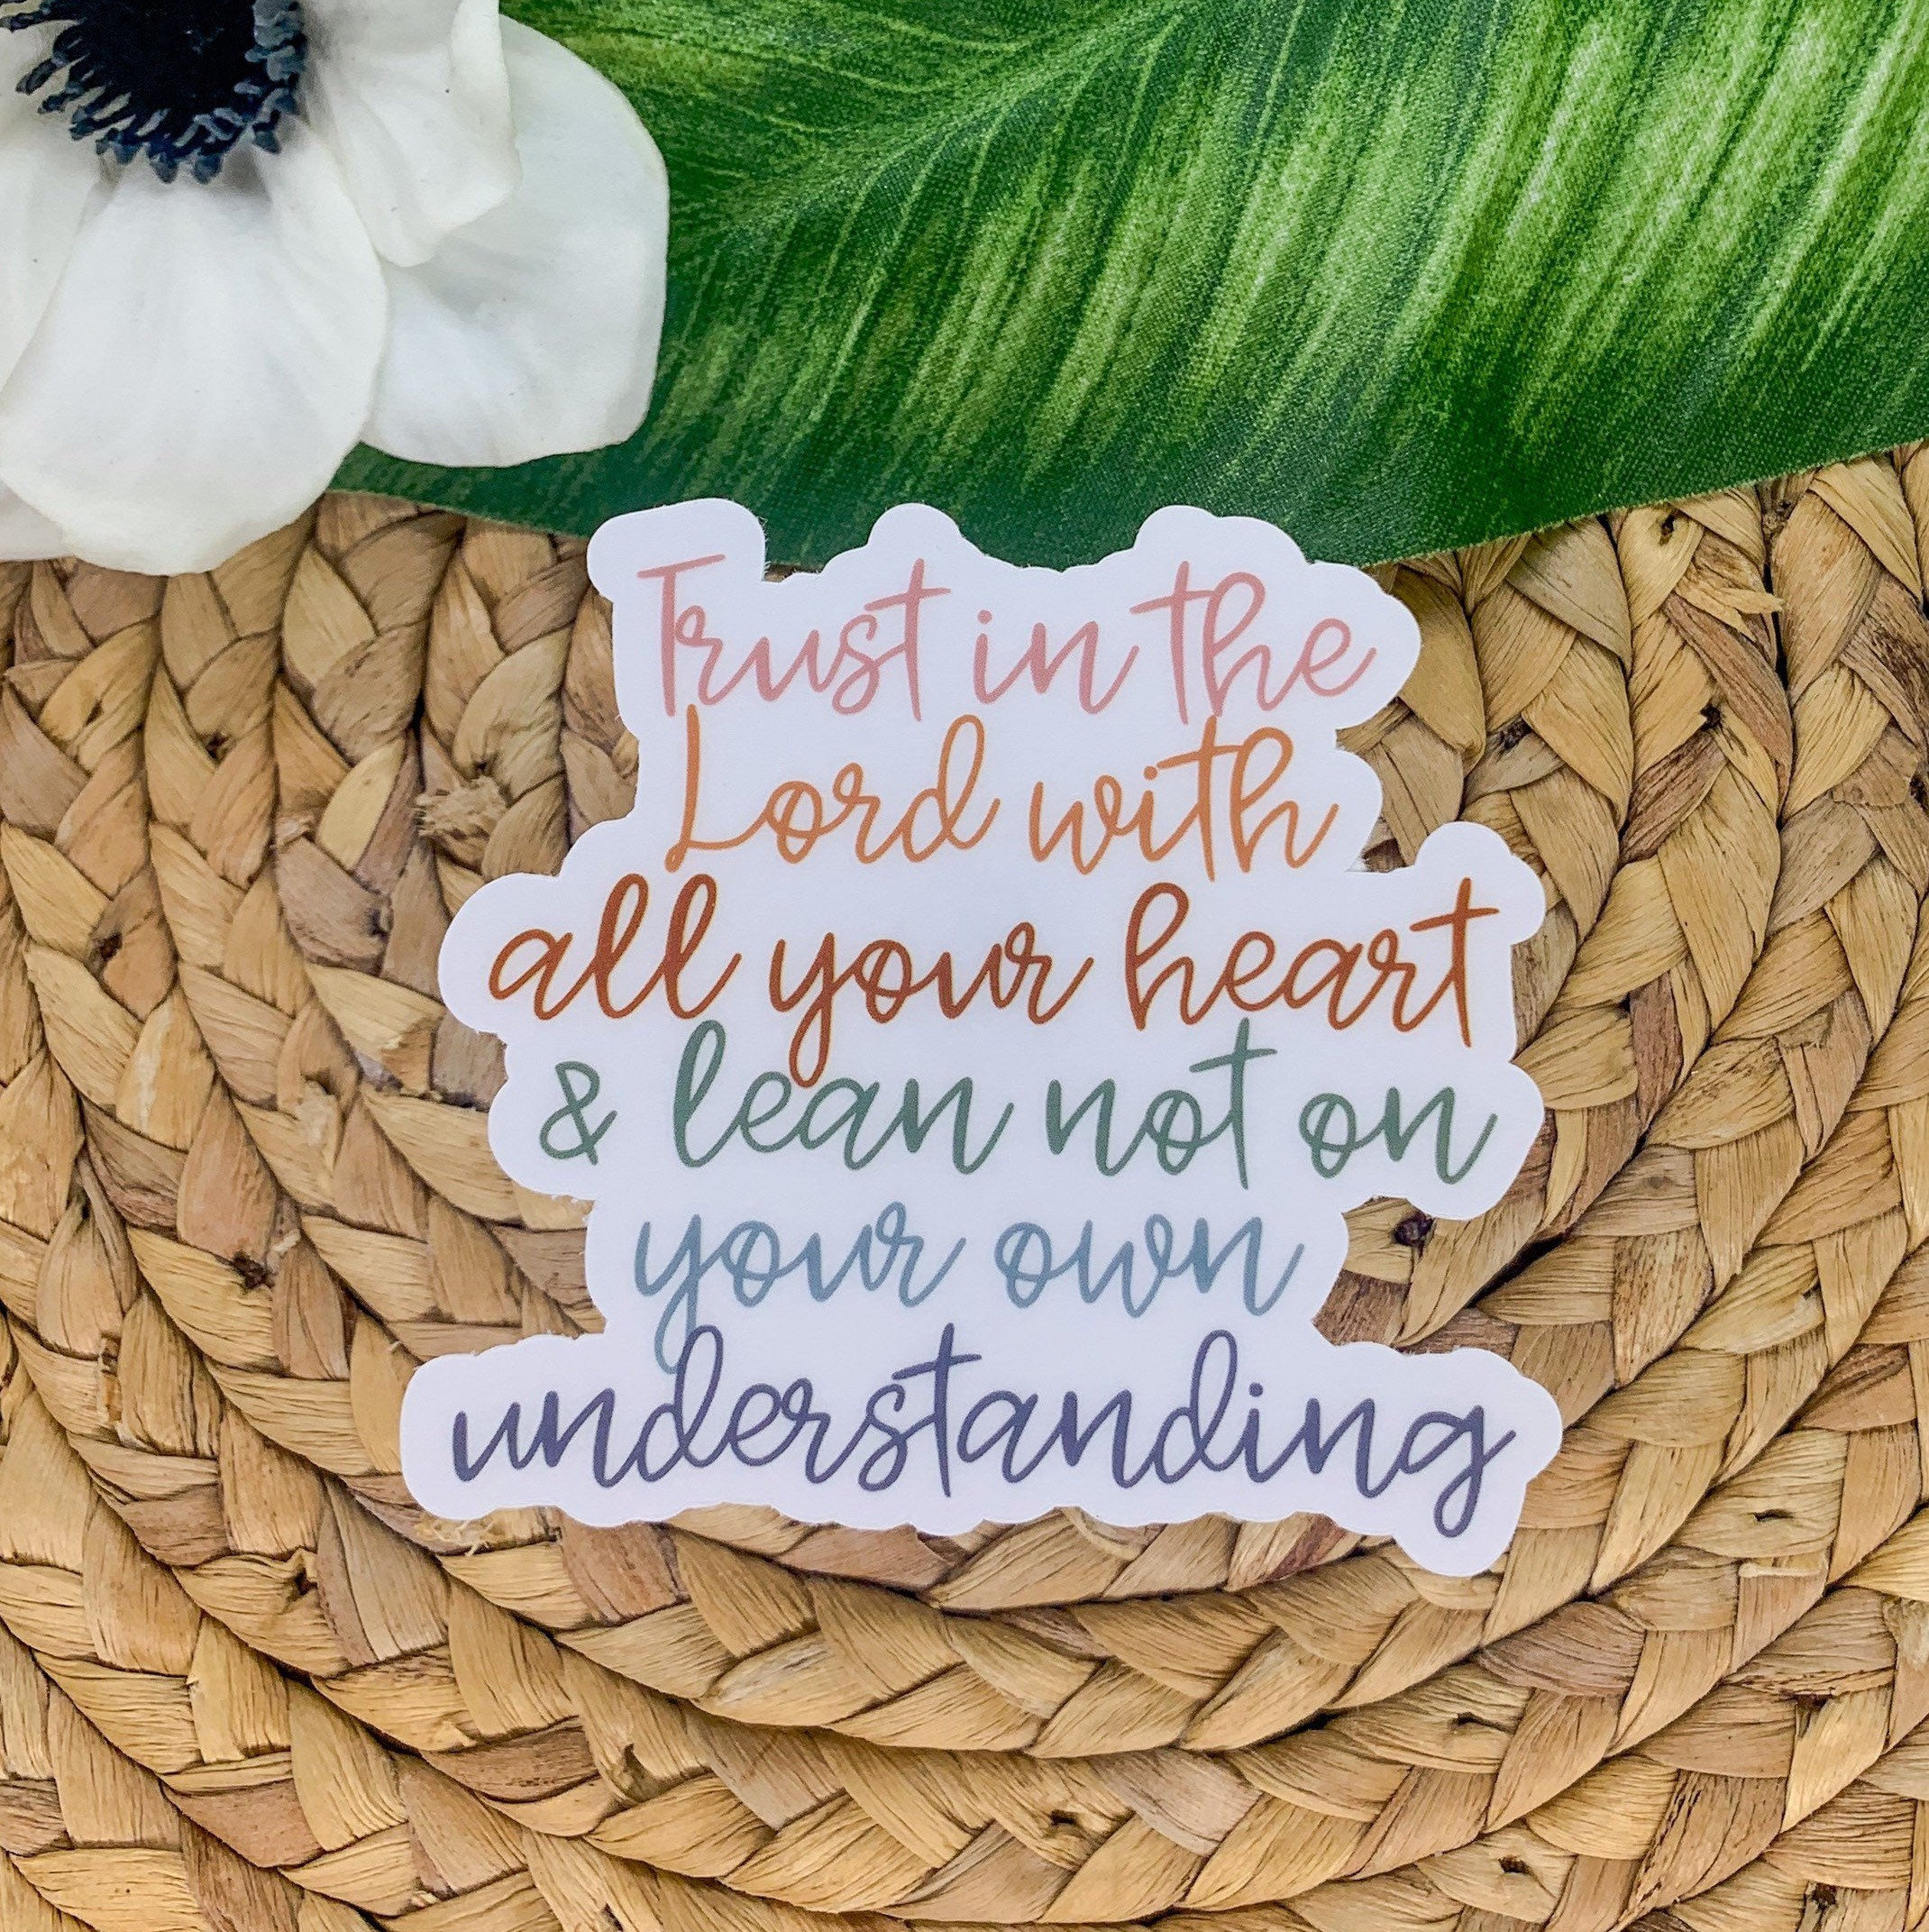 Trust in the
Lord with
all your heart
& lean not on
your own
understanding